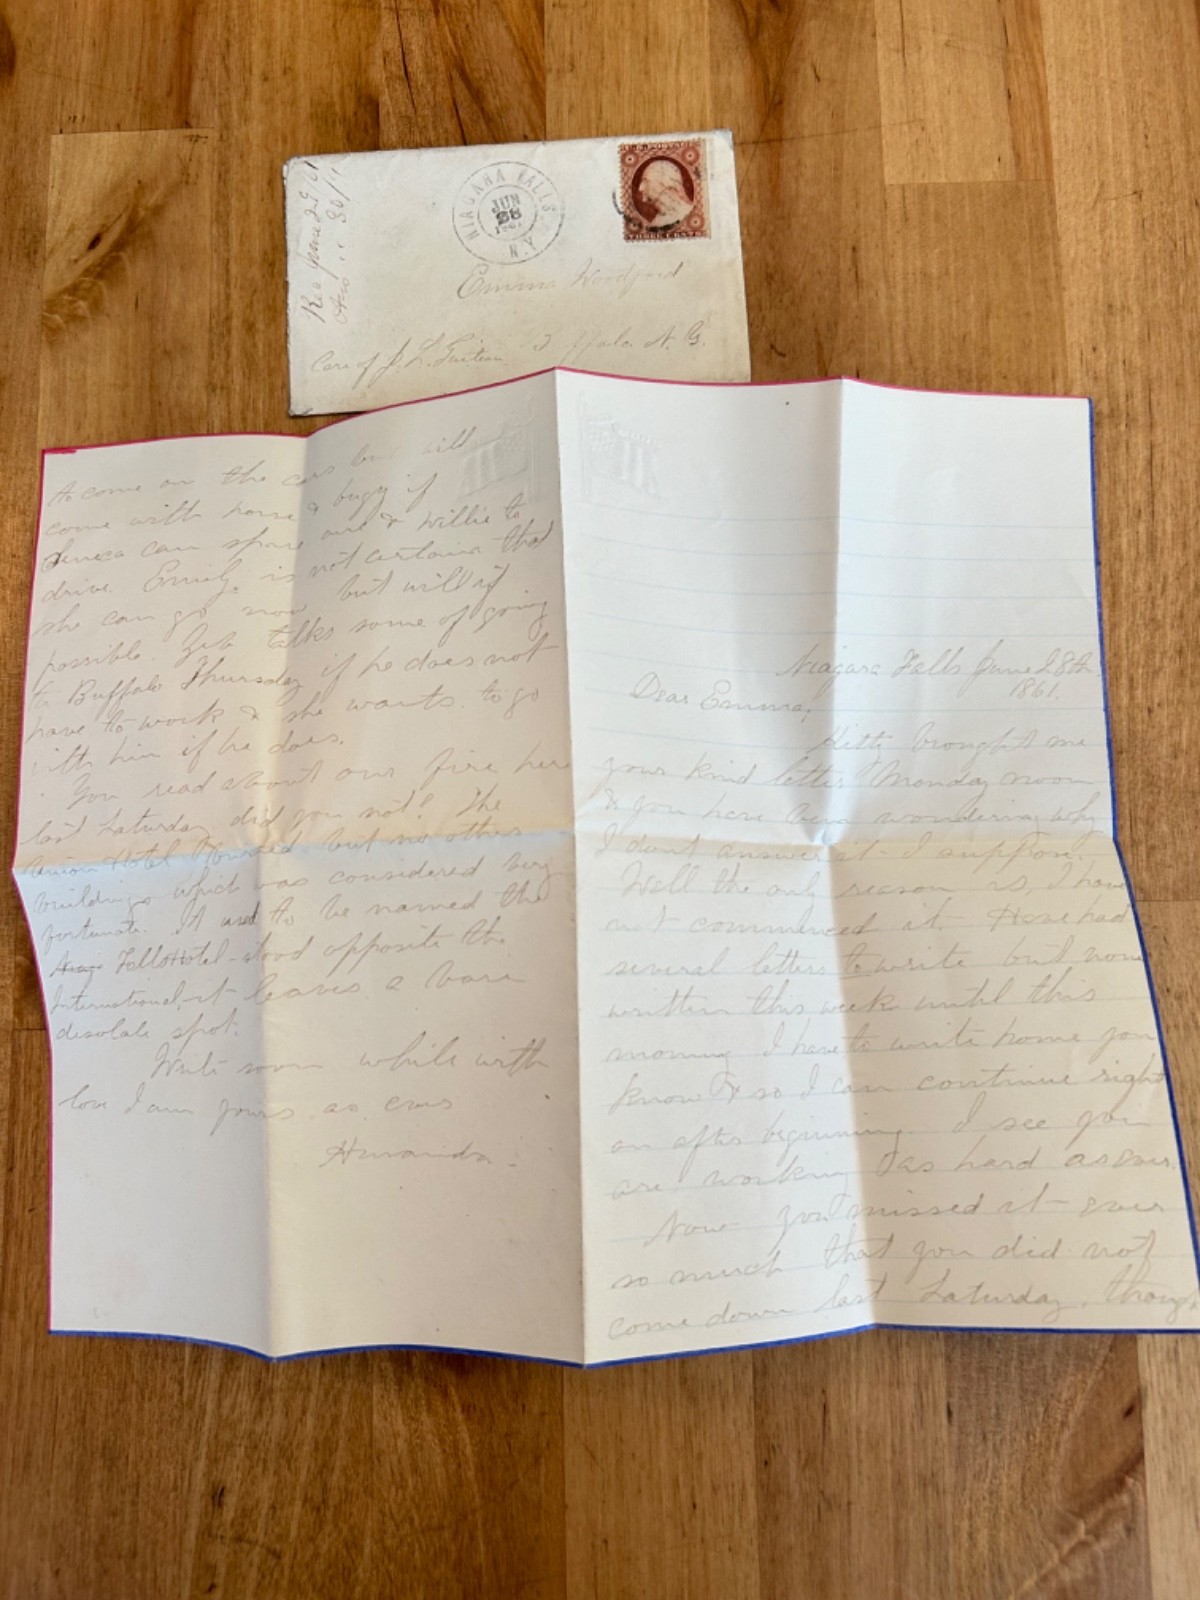 NIAGARA FALLS
JUN
28
1861
N.Y.
U.S. POSTAGE
THREE CENTS
Rec June 29/61
Ans " 30/61
Emma Woodford
Care of J. L. Buffalo N. Y.
Niagara Falls June 28th,
1861.
Dear Emma,
Kitti brought me
your kind letter Monday noon
& you have been wondering why
I dont answer it I suppose.
Well the only reason is, I have
not commenced it. Have had
several letters to write but none
written this week until this
morning I have to write home you
know & so I can continue right
on after beginning. I see you
are working as hard as ever.
Now you missed it ever
so much that you did not
come down last Saturday, though
to come on the cars but will
come with horse & bugy if
Seneca can spare one & Willie to
drive. Emily is not certain that
she can go now but will if
possible. talks some of going
to Buffalo Thursday if he does not
have to work & she wants to go
with him if he does.
You read about our fire here
last Saturday did you not? The
Union Hotel burned but no other
buildings which was considered very
fortunate. It used to be named the
Falls Hotel - stood opposite the
International, it leaves a bare
disolate spot.
Write soon while with
love I am yours as ever
Amanda.